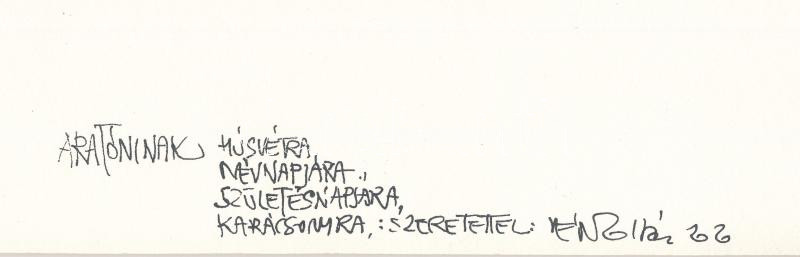 ARATÓNINAK HÚSVÉTRA,
NÉVNAPJÁRA.,
SZÜLETÉSNAPJÁRA,
KARÁCSONYRA, :SZERETETTEL: